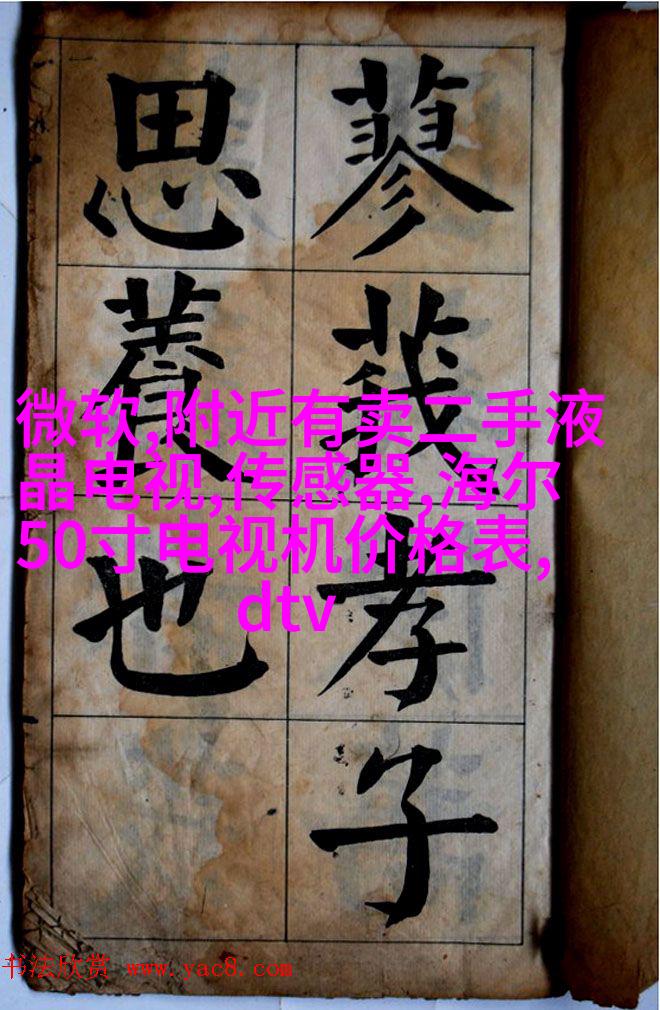 蓼莪孝子
思養也
微软,附近有卖二手液
晶电视,传感器,海尔
50寸电视机价格表,
dtv
书法欣赏 www.yac8.com